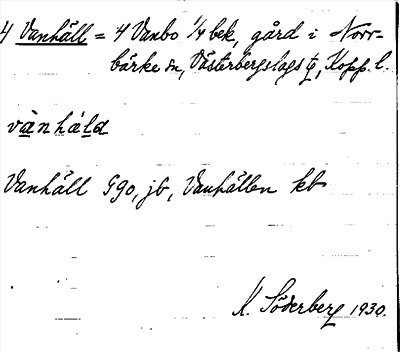 4 Vanhäll = 4 Vanbo 1/4 bek, gård i Norr-
bärke sn, Västerbergslags tg, Kopp. l.
vànháld
Vanhäll G90, jb, Vanhällen kb
K. Söderberg 1930.